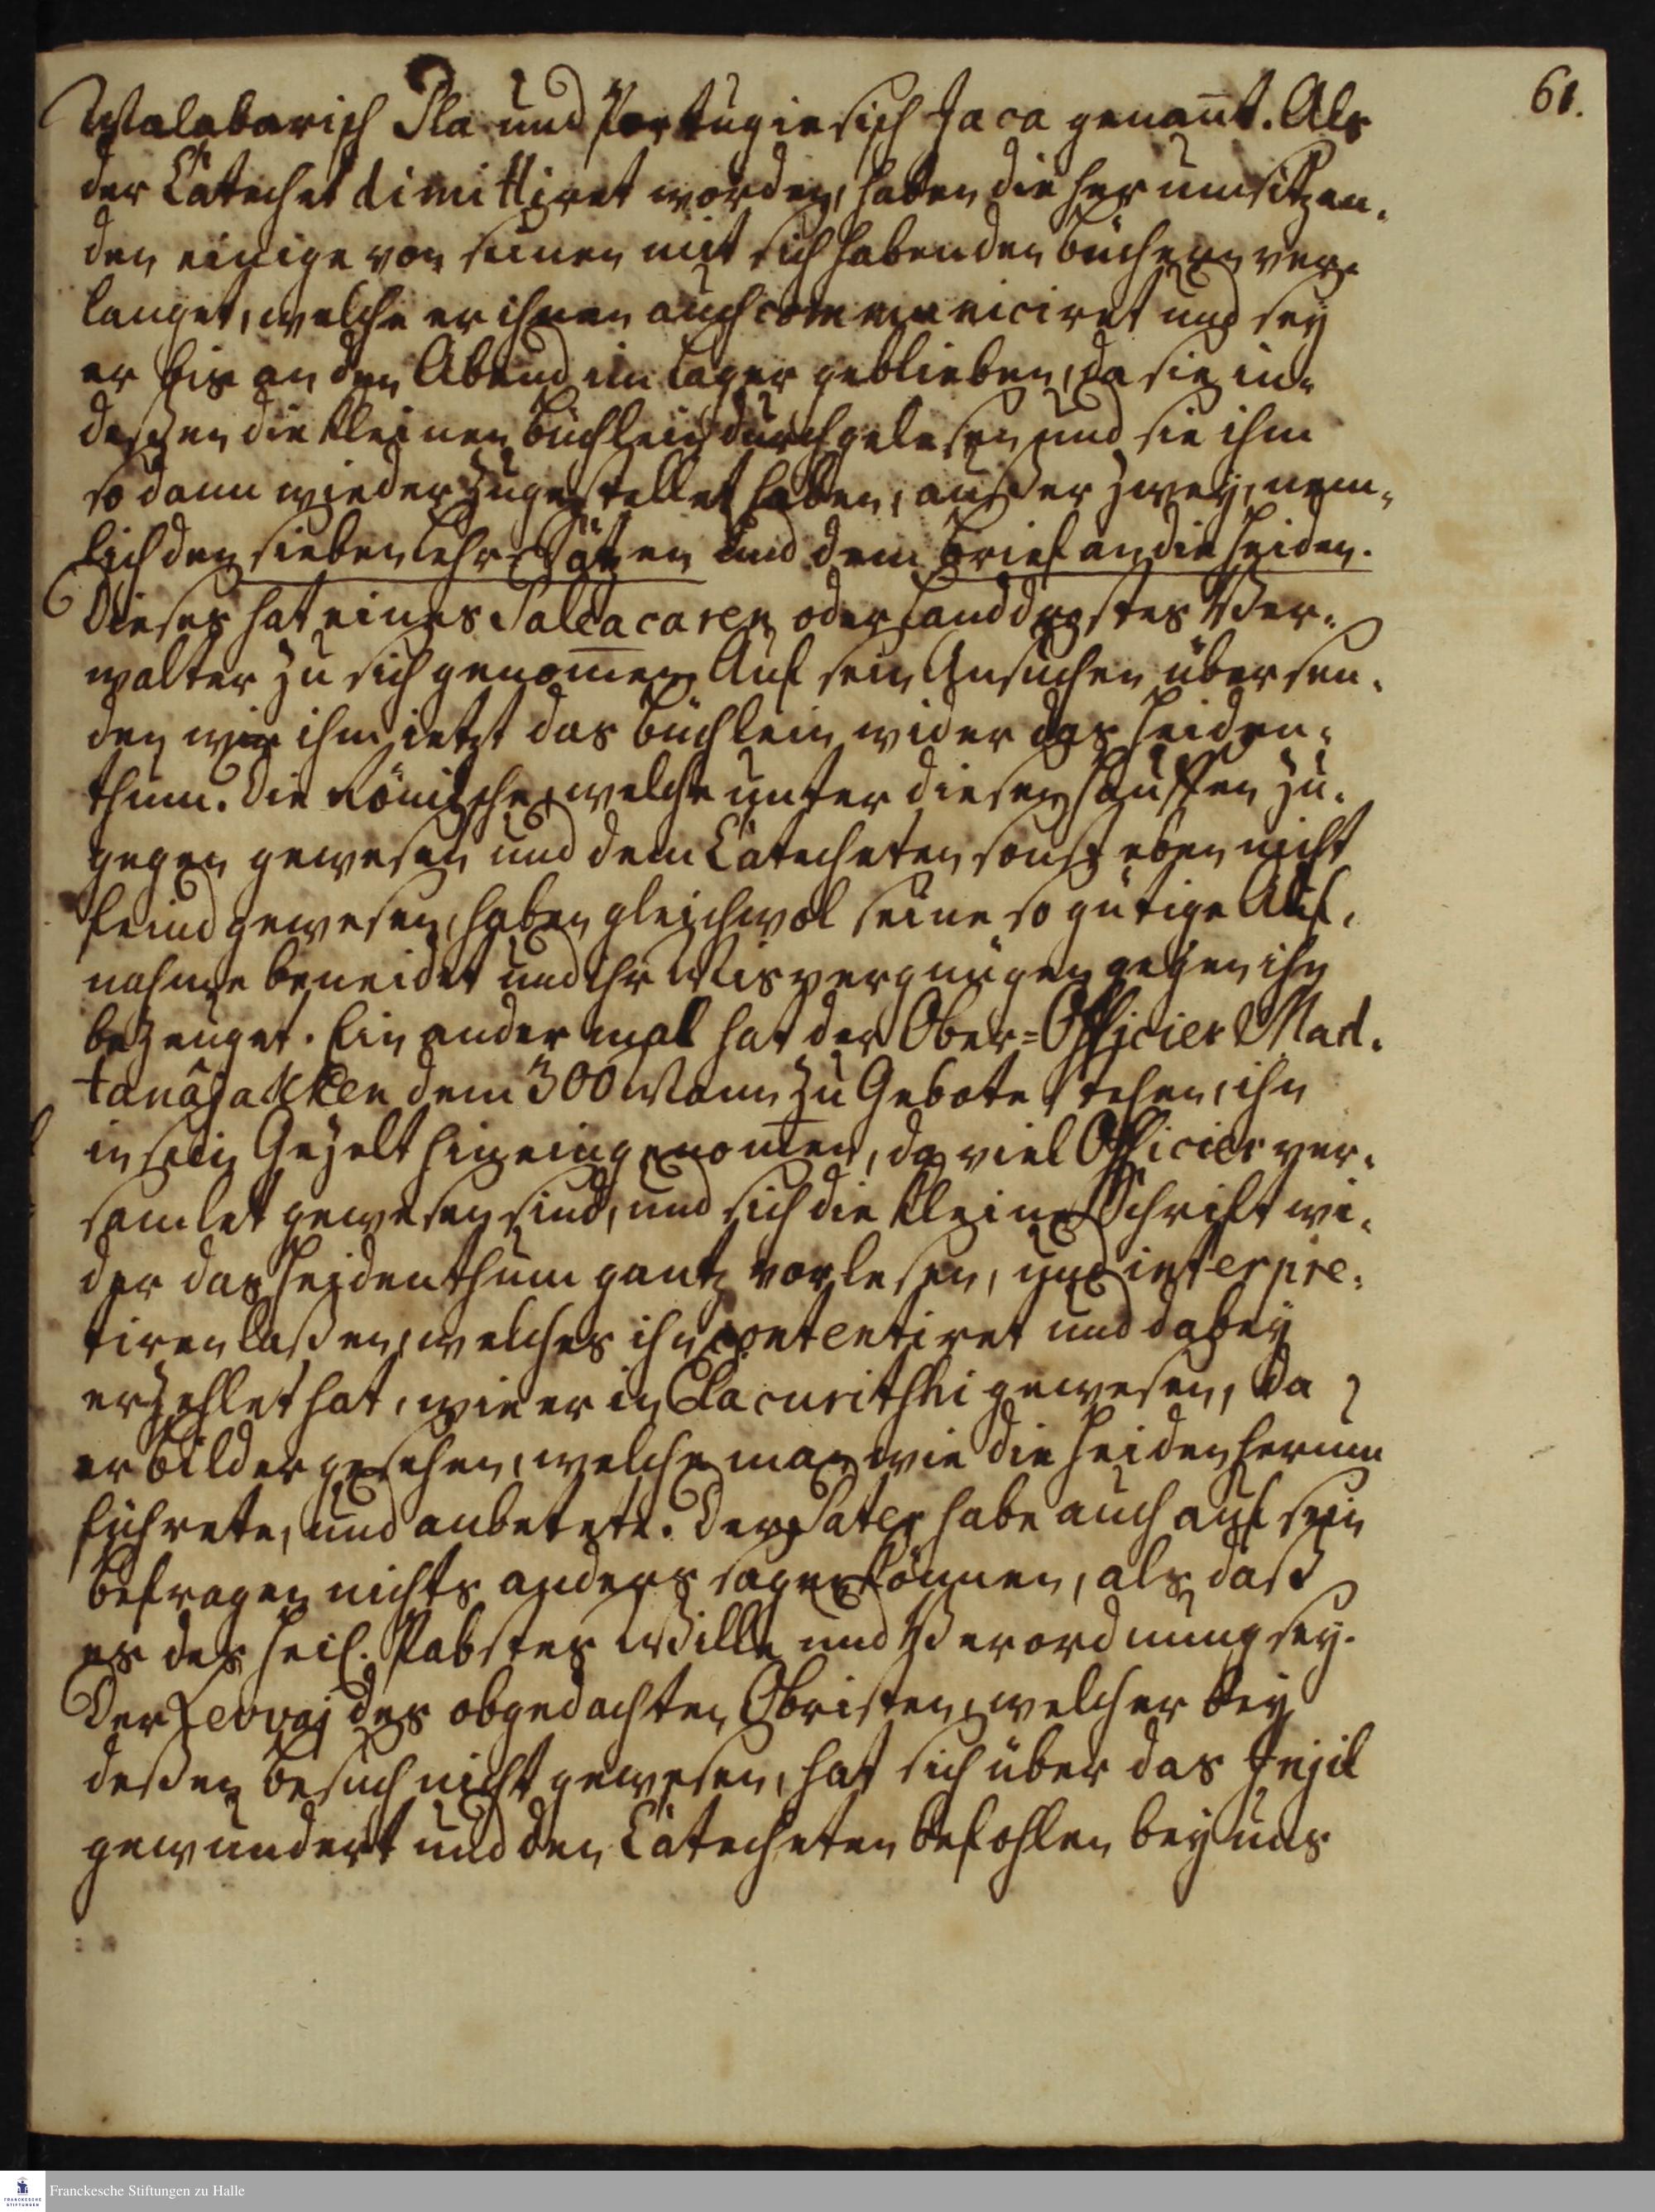 61.
Malabarisch Pla und Portugiesisch Jaca genan̅t. Als
der Catechet dimittiret worden, haben die herumsitzen-
den einige von seinen mit sich habenden Büchern ver-
langet, welche er ihnen auch communiciret und sey
er bis an den Abend im Lager geblieben, da sie in-
deßen die kleinen Büchlein durchgelesen und sie ihm
so dann wieder zugestellet haben, außer zwey, nem-
lich den sieben Lehr-Sätzen und dem Brief an die Heiden.
Dieses hat eines Paleacaren oder Landdrostes Ver-
walter zu sich genom̅en. Auf sein Ansuchen übersen-
den wir ihm jetzt das Büchlein wider das Heiden-
thum. Die Römische, welche unter diesen Hauffen zu-
gegen gewesen und dem Catecheten sonst eben nicht
feind gewesen, haben gleichwol seine so gütige Auf-
nahme beneidet und ihr Misvergnügen gegen ihn
bezeuget. Ein ander mal hat der Ober=Officier Mad-
tanâjakken dem 300 Mann zu Gebote stehen, ihn
in sein Gezelt hineingenom̅en, da viel Officier ver-
samlet gewesen sind, und sich die kleine Schrift wi-
der das Heidenthum gantz vorlesen, und interpre-
tiren laßen, welches ihn contentiret und dabey
erzehlet hat, wie er in Elacuritshi gewesen, da
er Bilder gesehen, welche man wie die Heiden herum
führete, und anbetete. Der Pater habe auch auf sein
Befragen nichts anders sagen können, als daß
es des Heil. Pabstes Wille und Verordnung sey.
Der Lewaj des obgedachten Obristen, welcher bey
deßen Besuch nicht gewesen, hat sich über das Injil
gewundert und den Catecheten befohlen bey uns
Franckesche Stiftungen zu Halle
FRANCKESCHE
STIFTUNGEN